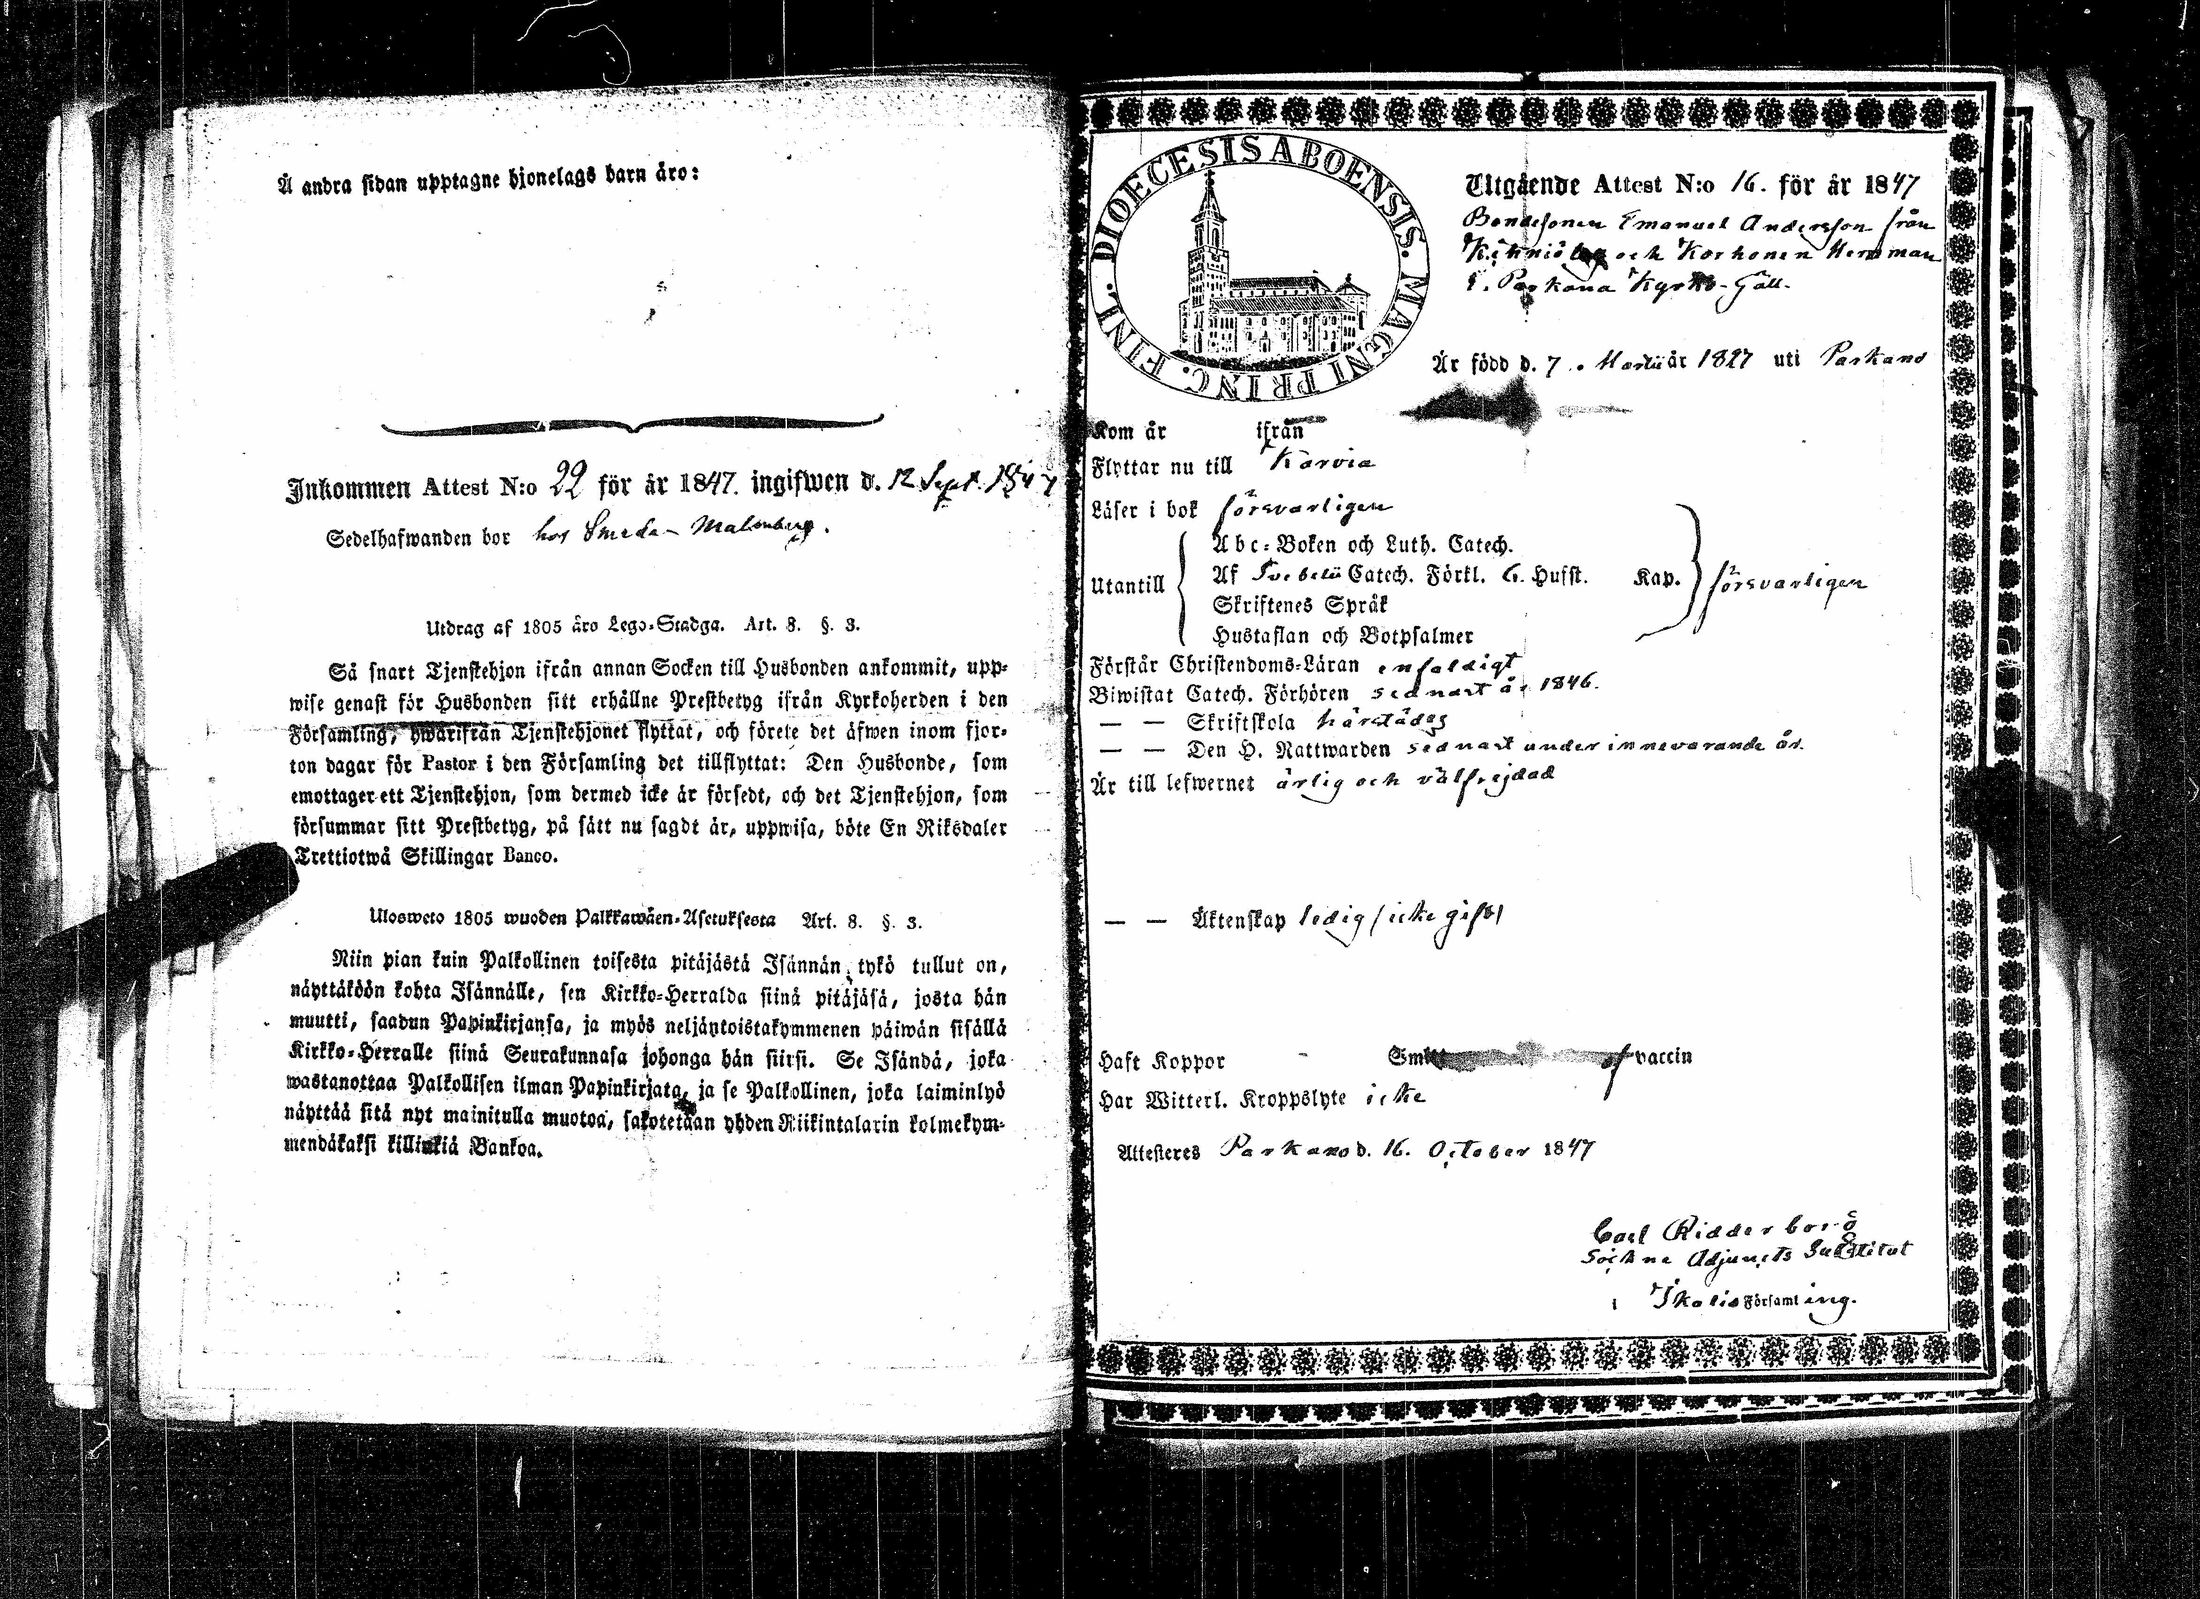 Å andra sidan upptagne hjonelags barn äro:
Inkommen Attest N:o 22 för år 1847. ingifwen d. 12 Sept. 1847
Sedelhafwanden bor hos Smeden Malmberg.
Utdrag af 1805 års Lego-Stadga. Art. 8. §. 3.
Så snart Tjenstehjon ifrån annan Socken till Husbonden ankommit, upp-
wise genast för Husbonden sitt erhållne Prestbetyg ifrån Kyrkoherden i den
Församling, hwarifrån Tjenstehjonet flyttat, och förete det äfwen inom fjor-
ton dagar för Pastor i den Församling det tillflyttat: Den Husbonde, som
emottager ett Tjenstehjon, som dermed icke är försedt, och det Tjenstehjon, som
försummar sitt Prestbetyg, på sätt nu sagdt är, uppwisa, böte En Riksdaler
Trettiotwå Skillingar Banco.
Ulosweto 1805 wuoden Palkkawäen-Asetuksesta Art. 8. §. 3.
Niin pian kuin Palkollinen toisesta pitäjästä Isännän tykö tullut on,
näyttäköön kohta Isännälle, sen Kirkko-Herralda siinä pitäjäsä, josta hän
muutti, saadun Papinkirjansa, ja myös neljäntoistakymmenen päiwän sisällä
Kirkko-Herralle siinä Seurakunnasa johonga hän siirsi. Se Isändä, joka
wastanottaa Palkollisen ilman Papinkirjata, ja se Palkollinen, joka laiminlyö
näyttää sitä nyt mainitulla muotoa, sakotetaan yhden Riikintalarin kolmekym-
mendäkaksi killinkiä Bankoa.
DIOECESIS ABOENSIS. MAGNI PRINC. FINL.
Utgående Attest N:o 16. för år 1847
Bondesonen Emanuel Andersson från
Kihniö by och Korhonen Hemman
i Parkano Kyrko-Gäll.
Är född d. 7. Martii år 1827 uti Parkano
Kom år ifrån
Flyttar nu till Karvia
Läser i bok försvarligen
Utantill
Abc-Boken och Luth. Catech.
Af Svebelii Catech. Förkl. 6. Hufst. Kap.
Skriftenes Språk
Hustaflan och Botpsalmer
försvarligen
Förstår Christendoms-Läran enfaldigt
Biwistat Catech. Förhören sednast år 1846.
— — Skriftskola härstädes
— — Den H. Nattwarden sednast under innevarande år.
Är till lefwernet ärlig och välfrejdad
— — Äktenskap ledig (icke gift)
Haft Koppor Smitt af vaccin
Har Witterl. Kroppslyte icke
Attesteres Parkano d. 16. October 1847
Carl Ridderborg
Sockne Adjuncts Substitut
i Ikalis Församling.